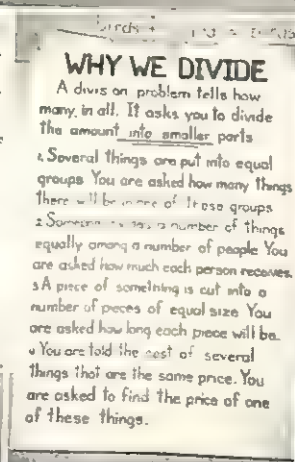 WHY WE DIVIDE
A division problem tells how
many in all. It asks you to divide
the amount into smaller parts
1. Several things are put into equal
groups You are asked how many things
there will be in one of these groups
2 Someone has a number of things
equally among a number of people You
are asked how much each person receives.
3 A piece of something is cut into a
number of peces of equal size You
are asked how long each piece will be.
4 You are told the cost of several
things that are the same price. You
are asked to find the price of one
of these things.